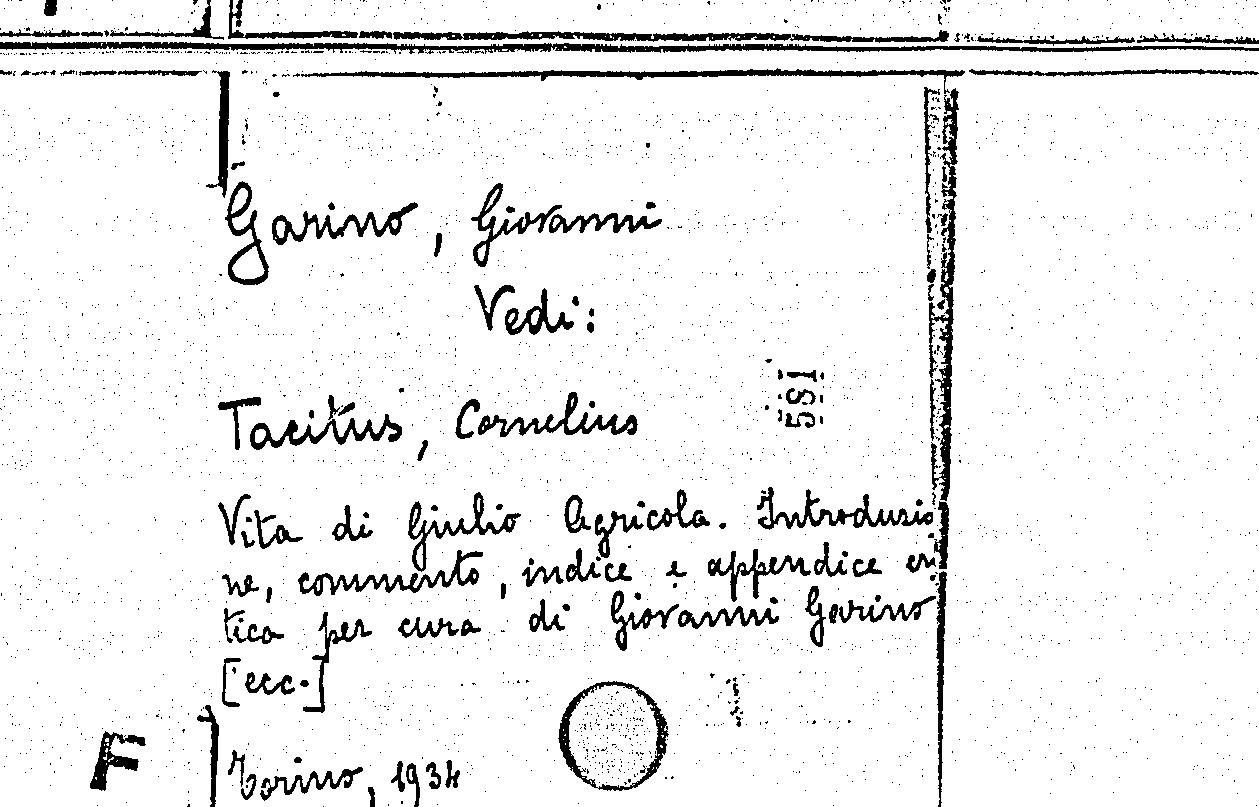 Garino, Giovanni
Vedi:
Tacitus, Cornelius
581
Vita di Giulio Agricola. Introduzio
ne, commento, indice e appendice cri
tica per cura di Giovanni Garino
[ecc.]
F
Torino, 1934